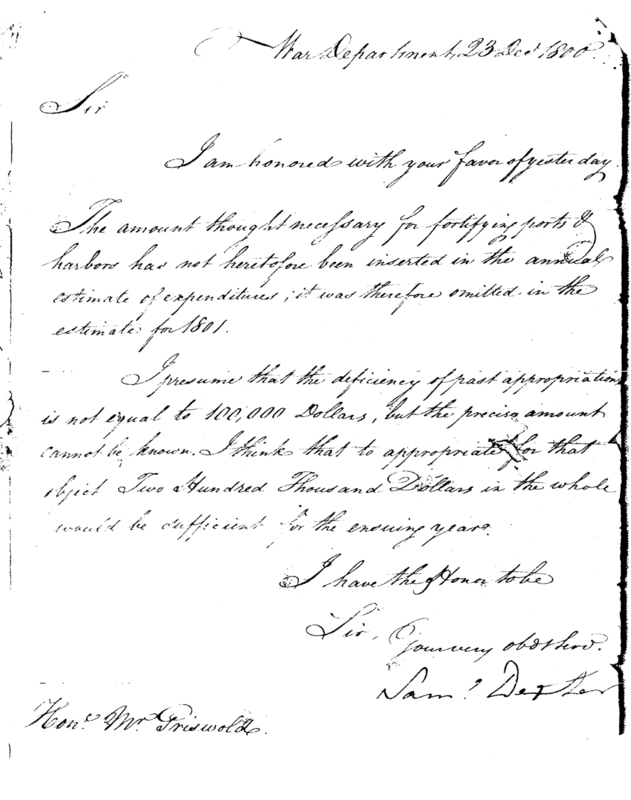 War Department, 23 Decr 1800.
Sir
I am honored with your favor of yesterday.
The amount thought necessary for fortifying ports &
harbors has not heretofore been inserted in the annual
estimate of expenditures; it was therefore omitted in the
estimate for 1801.
I presume that the deficiency of past appropriations
is not equal to 100,000 Dollars, but the precise amount
cannot be known. I think that to appropriate for that
object Two Hundred Thousand Dollars in the whole
would be sufficient for the ensuing year.
I have the Honor to be
Sir, your very obdt servt.
Saml Dexter
Honl Mr Griswold.